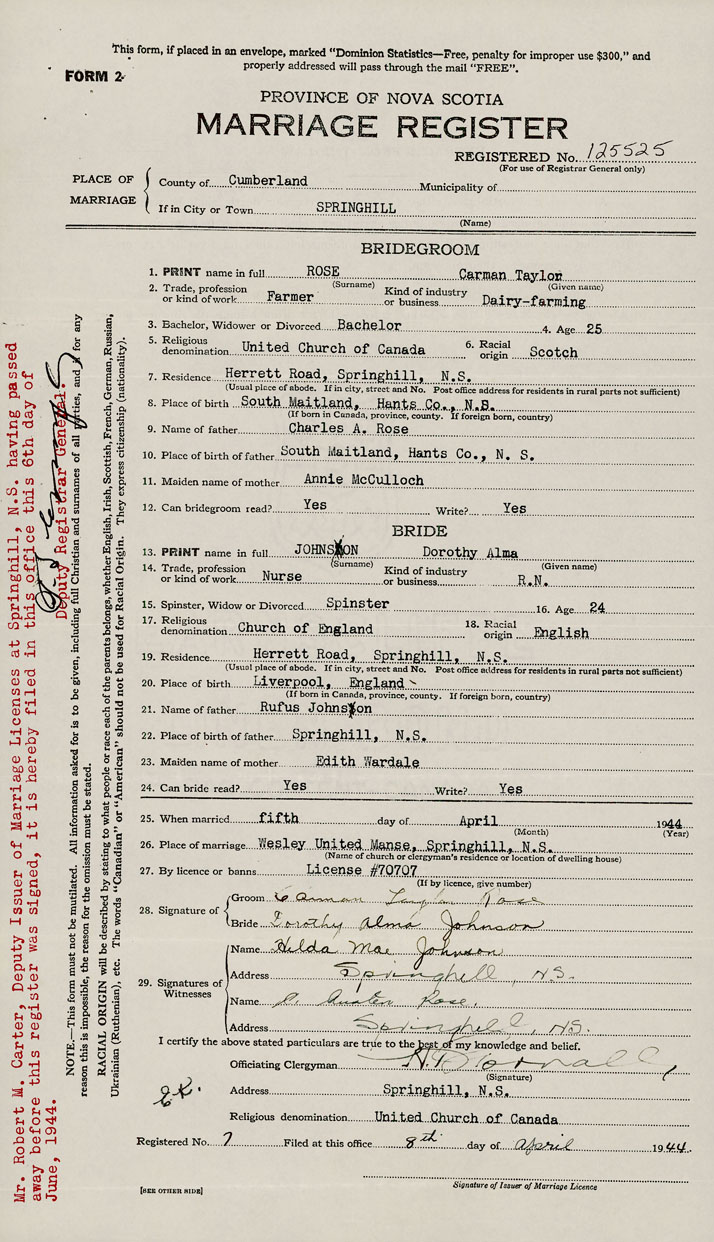 This form, if placed in an envelope, marked "Dominion Statistics—Free, penalty for improper use $300," and
properly addressed will pass through the mail "FREE".
FORM 2
PROVINCE OF NOVA SCOTIA
MARRIAGE REGISTER
REGISTERED No. 125525
(For use of Registrar General only)
PLACE OF MARRIAGE
County of Cumberland Municipality of
If in City or Town SPRINGHILL
(Name)
BRIDEGROOM
1. PRINT name in full ROSE Carman Taylor
(Surname) (Given name)
2. Trade, profession or kind of work Farmer Kind of industry or business Dairy-farming
3. Bachelor, Widower or Divorced Bachelor 4. Age 25
5. Religious denomination United Church of Canada 6. Racial origin Scotch
7. Residence Herrett Road, Springhill, N.S.
(Usual place of abode. If in city, street and No. Post office address for residents in rural parts not sufficient)
8. Place of birth South Maitland, Hants Co., N.B.
(If born in Canada, province, county. If foreign born, country)
9. Name of father Charles A. Rose
10. Place of birth of father South Maitland, Hants Co., N. S.
11. Maiden name of mother Annie McCulloch
12. Can bridegroom read? Yes Write? Yes
BRIDE
13. PRINT name in full JOHNSON Dorothy Alma
(Surname) (Given name)
14. Trade, profession or kind of work Nurse Kind of industry or business R.N.
15. Spinster, Widow or Divorced Spinster 16. Age 24
17. Religious denomination Church of England 18. Racial origin English
19. Residence Herrett Road, Springhill, N.S.
(Usual place of abode. If in city, street and No. Post office address for residents in rural parts not sufficient)
20. Place of birth Liverpool, England
(If born in Canada, province, county. If foreign born, country)
21. Name of father Rufus Johnson
22. Place of birth of father Springhill, N.S.
23. Maiden name of mother Edith Wardale
24. Can bride read? Yes Write? Yes
25. When married fifth day of April 1944
(Month) (Year)
26. Place of marriage Wesley United Manse, Springhill, N.S.
(Name of church or clergyman's residence or location of dwelling house)
27. By licence or banns License #70707
(If by licence, give number)
28. Signature of
Groom Carman Taylor Rose
Bride Dorothy Alma Johnson
29. Signatures of Witnesses
Name Hilda Mae Johnson
Address Springhill, N.S.
Name Austin Rose,
Address Springhill, N.S.
I certify the above stated particulars are true to the best of my knowledge and belief.
Officiating Clergyman
(Signature)
Address Springhill, N.S.
Religious denomination United Church of Canada
Registered No. 7 Filed at this office 8th day of April 1944.
Signature of Issuer of Marriage Licence
[SEE OTHER SIDE]
NOTE.—This form must not be mutilated. All information asked for is to be given, including full Christian and surnames of all parties, and if for any
reason this is impossible, the reason for the omission must be stated.
RACIAL ORIGIN will be described by stating to what people or race each of the parents belongs, whether English, Irish, Scottish, French, German, Russian,
Ukrainian (Ruthenian), etc. The words "Canadian" or "American" should not be used for Racial Origin. They express citizenship (nationality).
Mr. Robert M. Carter, Deputy Issuer of Marriage Licenses at Springhill, N.S. having passed
away before this register was signed, it is hereby filed in this office this 6th day of
June, 1944.
Deputy Registrar General.